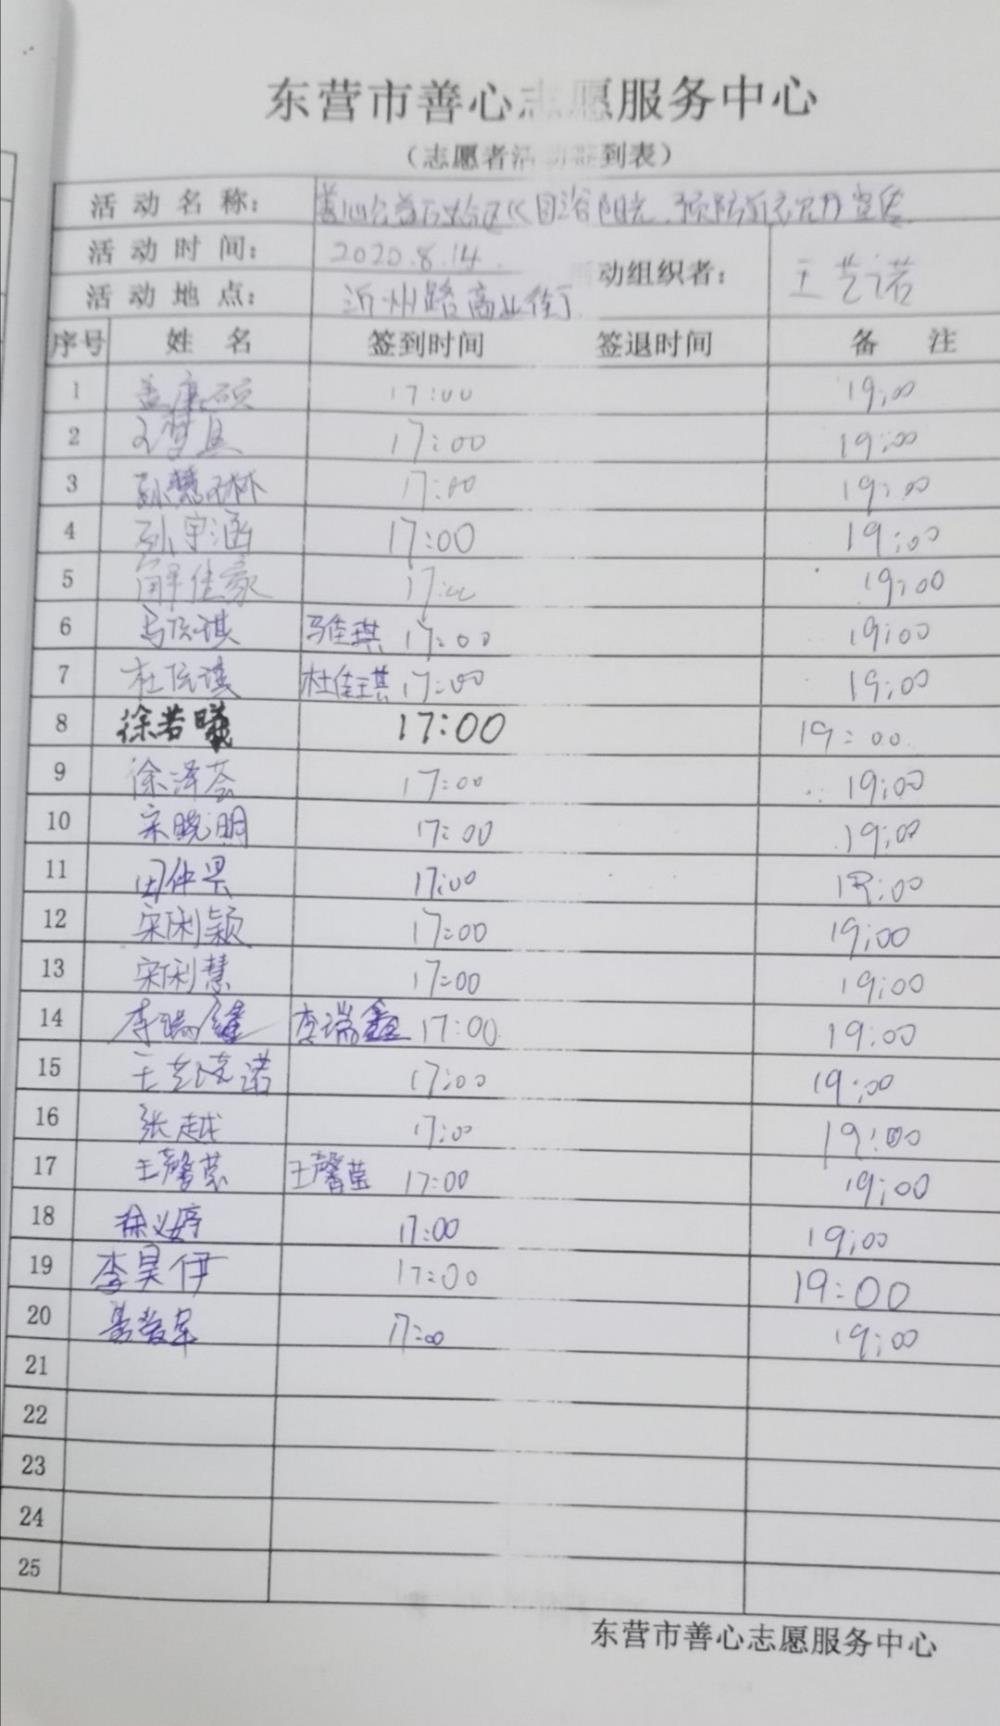 东营市善心志愿服务中心
（志愿者活动签到表）
活动名称： 善心公益 沐浴阳光 预防 宣传
活动时间： 2020.8.14
活动组织者： 王艺诺
活动地点： 沂州路商业街
序号 姓名 签到时间 签退时间 备注
1 盖康硕 17:00 19:00
2 17:00 19:00
3 孙慧琳 17:00 19:00
4 孙宇涵 17:00 19:00
5 解佳豪 17:00 19:00
6 马佳琪 马佳琪 17:00 19:00
7 杜佳琪 杜佳琪 17:00 19:00
8 徐若曦 17:00 19:00
9 徐泽荟 17:00 19:00
10 宋晓明 17:00 19:00
11 田仲昊 17:00 19:00
12 宋俐颖 17:00 19:00
13 宋俐慧 17:00 19:00
14 李瑞鑫 李瑞鑫 17:00 19:00
15 王艺诺 17:00 19:00
16 张越 17:00 19:00
17 王馨莹 王馨莹 17:00 19:00
18 徐义婷 17:00 19:00
19 李昊伊 17:00 19:00
20 17:00 19:00
21
22
23
24
25
东营市善心志愿服务中心